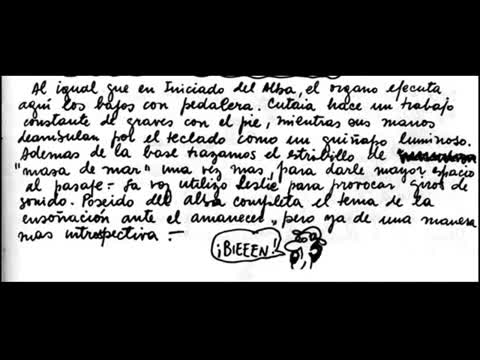 Al igual que en Iniciado del Alba, el organo ejecuta
aquí los bajos con pedalera. Cutaia hace un trabajo
constante de graves con el pie, mientras sus manos
deambulan por el teclado como un guiñapo luminoso.
Ademas de la base trazamos el estribillo de
"masa de mar" una vez mas, para darle mayor espacio
al pasaje.- La voz utilizo leslie para provocar giros de
sonido. Poseido del alba completa el tema de la
ensoñación ante el amanecer, pero ya de una manera
mas introspectiva.-
¡BIEEEN!